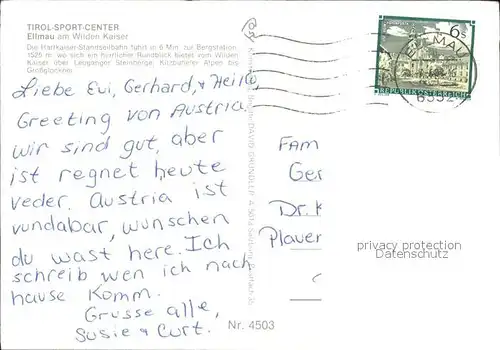 TIROL-SPORT-CENTER
Ellmau am Wilden Kaiser
Die Hartkaiser-Standseilbahn führt in 6 Min. zur Bergstation
1525 m, wo bietet sich ein herrlicher Rundblick vom Wilden
Kaiser über Leoganger Steinberge, Kitzbüheler Alpen bis
Großglockner
Liebe Evi, Gerhard, + Heike,
Greeting von Austria
wir sind gut, aber
ist regnet heute
veder. Austria ist
vundabar, wunschen
du wast here. Ich
schreib wen ich nach
hause Komm.
Grusse alle,
Susie + Curt.
Nr. 4503
6 S
REPUBLIK ÖSTERREICH
ELLMAU
6352
FAM
Ger
Dr. K
Plauer
privacy protection
Datenschutz